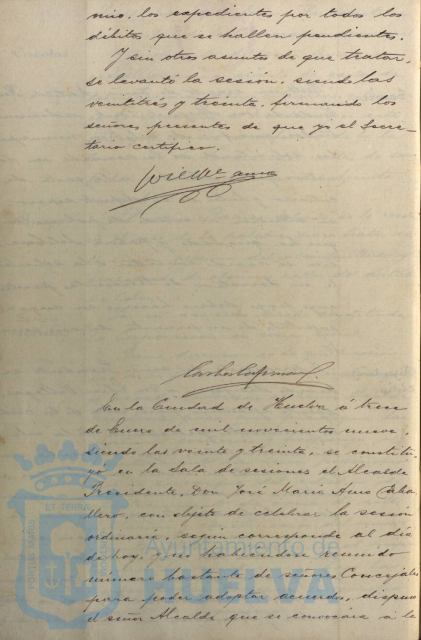 mio, los expedientes por todos los
débitos que se hallen pendientes.
Y sin otros asuntos de que tratar,
se levantó la sesión, siendo las
veintitrés y treinta, firmando los
señores presentes de que yo el Secre-
tario certifico.
En la Ciudad de Huelva á trece
de Enero de mil novecientos nueve,
siendo las veinte y treinta, se constitu-
yó en la Sala de sesiones el Alcalde
Presidente, Don José María Amo Caba-
llero, con objeto de celebrar la sesión
ordinaria, según corresponde al día
de hoy, y no habiendo
número bastante de señores Concejales
para poder adoptar acuerdos, dispuso
el señor Alcalde que se convocára á la
Ayuntamiento de
HUELVA